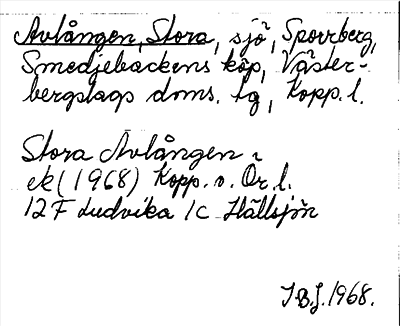 Avlången, Stora, sjö, Sporrberg,
Smedjebackens köp, Väster-
bergslags doms. tg, Kopp. l.
Stora Avlången
ek (1968) Kopp. o. Ör. l.
12 F Ludvika 1c Hällsjön
J B.J. 1968.